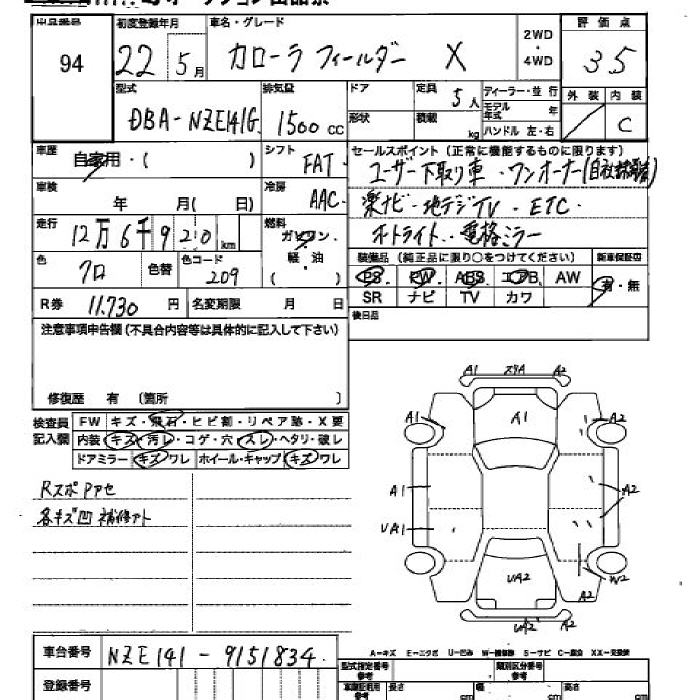 出品番号 初度登録年月 車名・グレード 2WD ・ 4WD 評価点
94 22 5月 カローラ フィールダー X 3.5
型式 排気量 ドア 定員 ディーラー・並行 外装 内装
DBA-NZE141G 1500cc 5人 モデル年式 年 C
形状 積載 kg ハンドル 左・右
車歴 自家用・( ) シフト FAT セールスポイント(正常に機能するものに限ります)
ユーザー下取り車・ワンオーナー
車検 年 月( 日) 冷房 AAC 楽ナビ・地デジTV・ETC・
走行 12万6千920km 燃料 ガソリン オートライト・電格ミラー
色 クロ 色替 色コード 209 軽・油 ( ) 装備品(純正品に限り○をつけてください) 新車保証書
PS PW ABS エアB AW 有・無
R券 11,730円 名変期限 月 日 SR ナビ TV カワ
注意事項申告欄(不具合内容等は具体的に記入して下さい) 後日品
修復歴 有 〔箇所 〕
検査員記入欄 FW キズ・飛石・ヒビ割・リペア跡・X要
内装 キズ・汚レ・コゲ・穴・スレ・ヘタリ・破レ
ドアミラー キズ ワレ ホイール・キャップ キズ ワレ
RスポPアセ
各キズ凹補修アト
A1 スリA A2
A1 A1 A2
A1 A2
UA1
UA2 W2
A2
UA2
A-キズ E-エクボ U-凹み W-補修跡 S-サビ C-腐食 XX-交換済
車台番号 NZE141-9151834
型式指定番号 参考 類別区分番号 参考
登録番号 車検証明用 参考 長さ cm 幅 cm 高さ cm